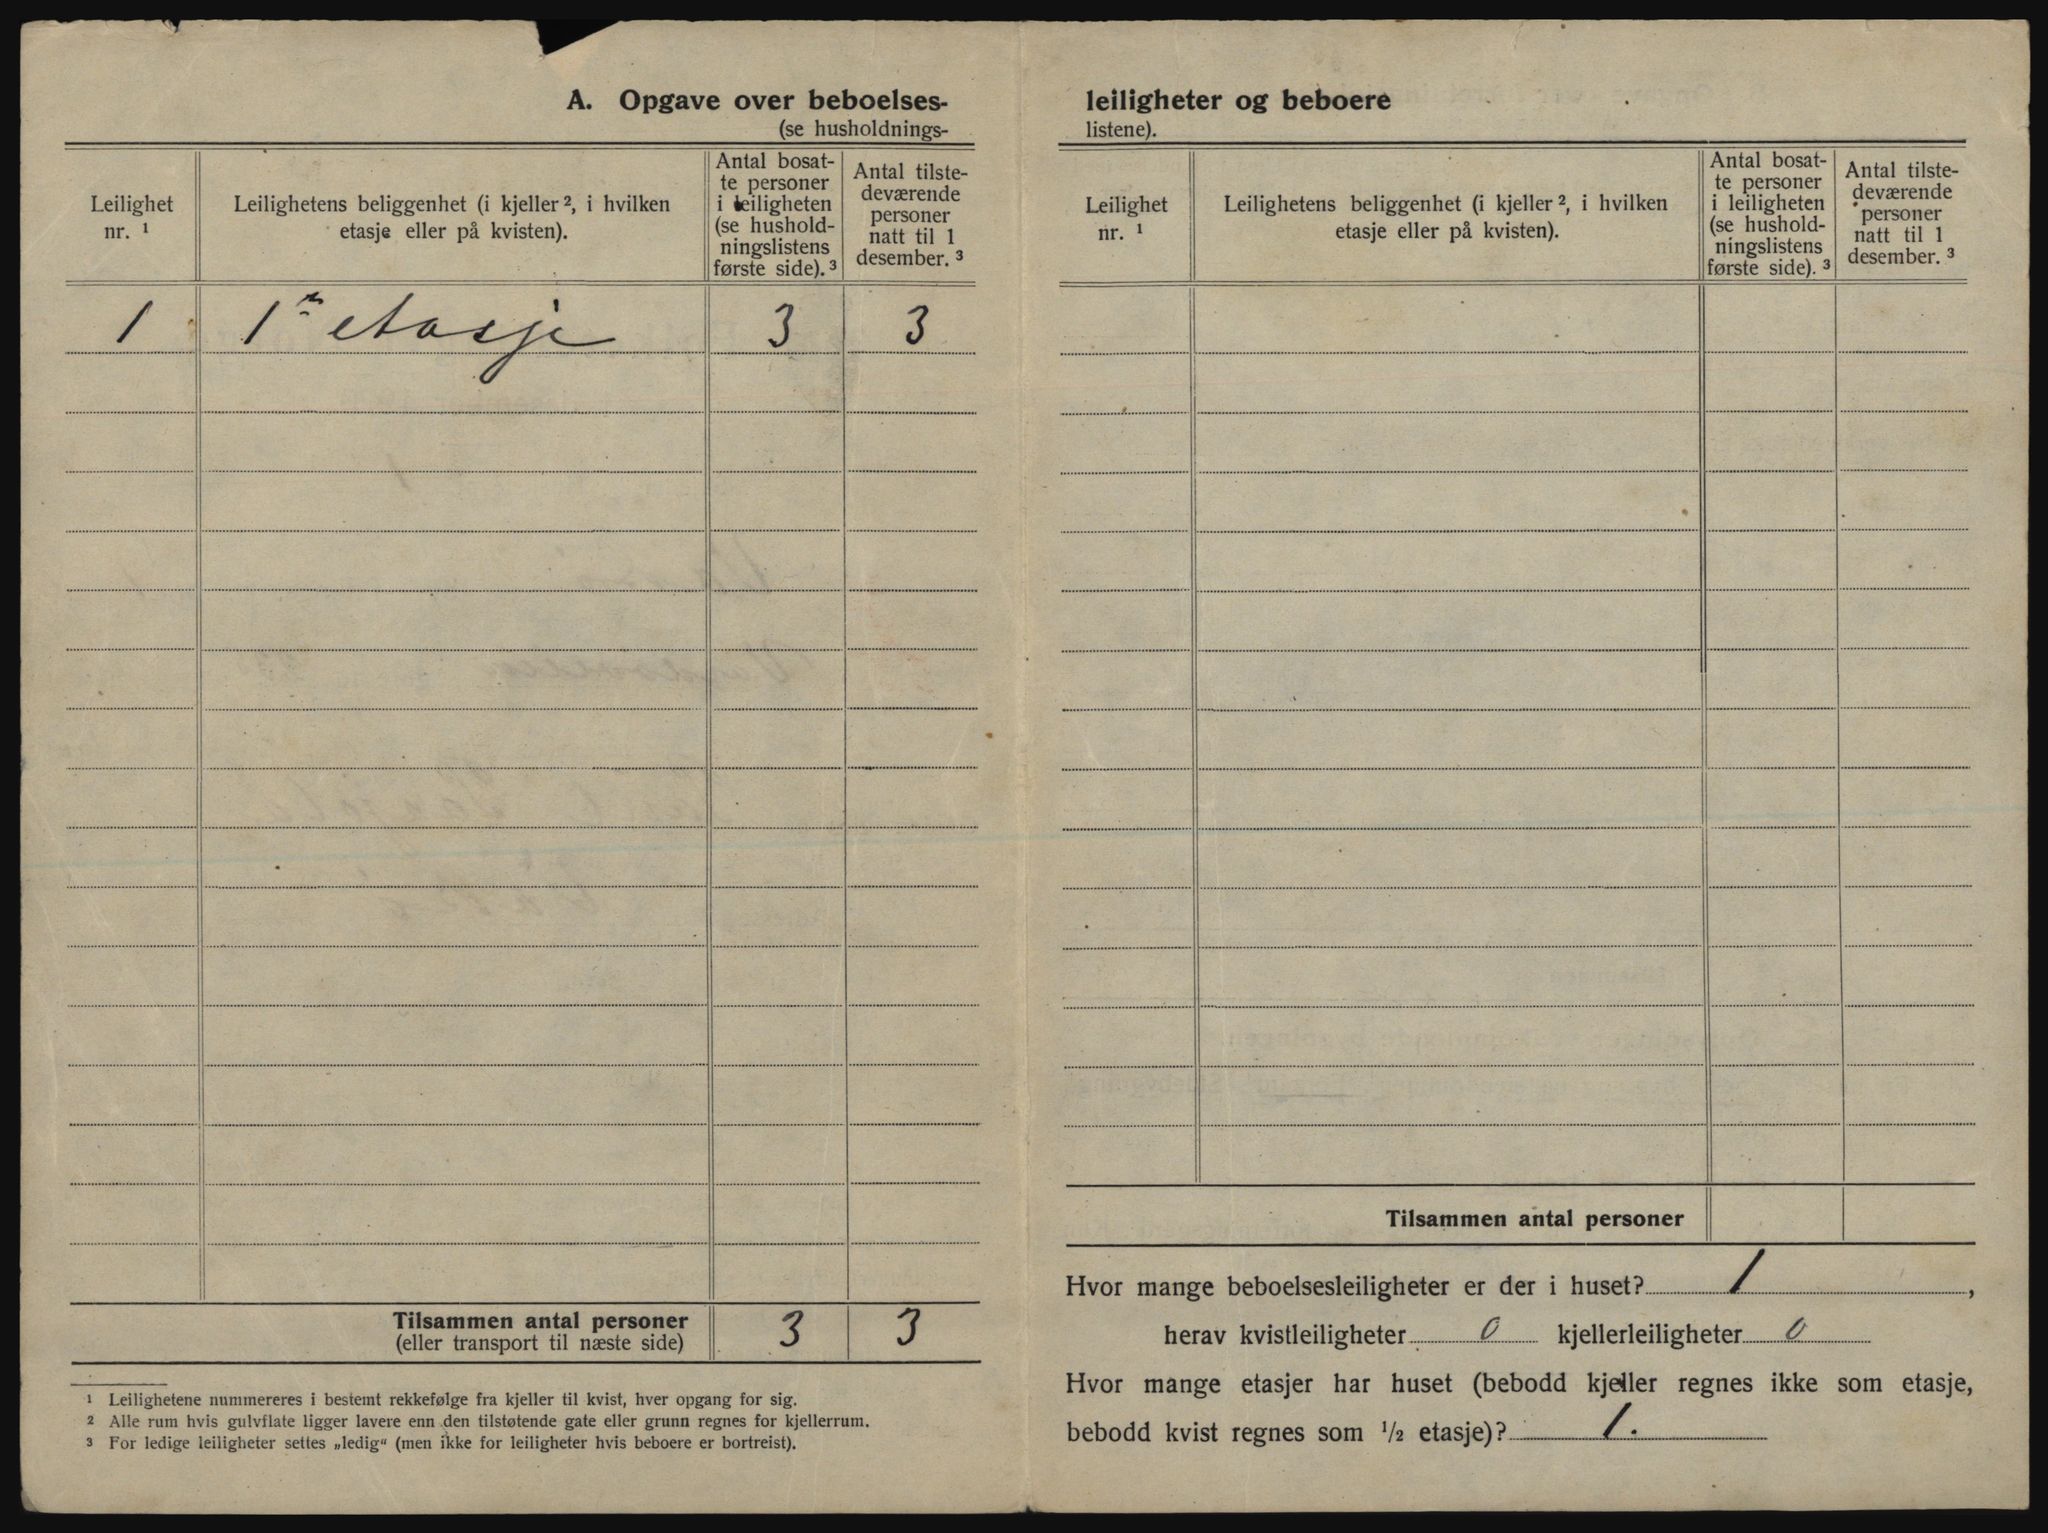 A. Opgave over beboelses-
(se husholdnings-
Leilighet nr. ¹
Leilighetens beliggenhet (i kjeller ², i hvilken
etasje eller på kvisten).
Antal bosat-
te personer
i leiligheten
(se hushold-
ningslistens
første side). ³
Antal tilste-
deværende
personer
natt til 1
desember. ³
1 1ˢ etasje 3 3
Tilsammen antal personer 3 3
(eller transport til næste side)
¹ Leilighetene nummereres i bestemt rekkefølge fra kjeller til kvist, hver opgang for sig.
² Alle rum hvis gulvflate ligger lavere enn den tilstøtende gate eller grunn regnes for kjellerrum.
³ For ledige leiligheter settes „ledig“ (men ikke for leiligheter hvis beboere er bortreist).
leiligheter og beboere
listene).
Leilighet
nr. ¹
Leilighetens beliggenhet (i kjeller ², i hvilken
etasje eller på kvisten).
Antal bosat-
te personer
i leiligheten
(se hushold-
ningslistens
første side). ³
Antal tilste-
deværende
personer
natt til 1
desember. ³
Tilsammen antal personer
Hvor mange beboelsesleiligheter er der i huset? 1 ,
herav kvistleiligheter 0 kjellerleiligheter 0
Hvor mange etasjer har huset (bebodd kjeller regnes ikke som etasje,
bebodd kvist regnes som ½ etasje)? 1.